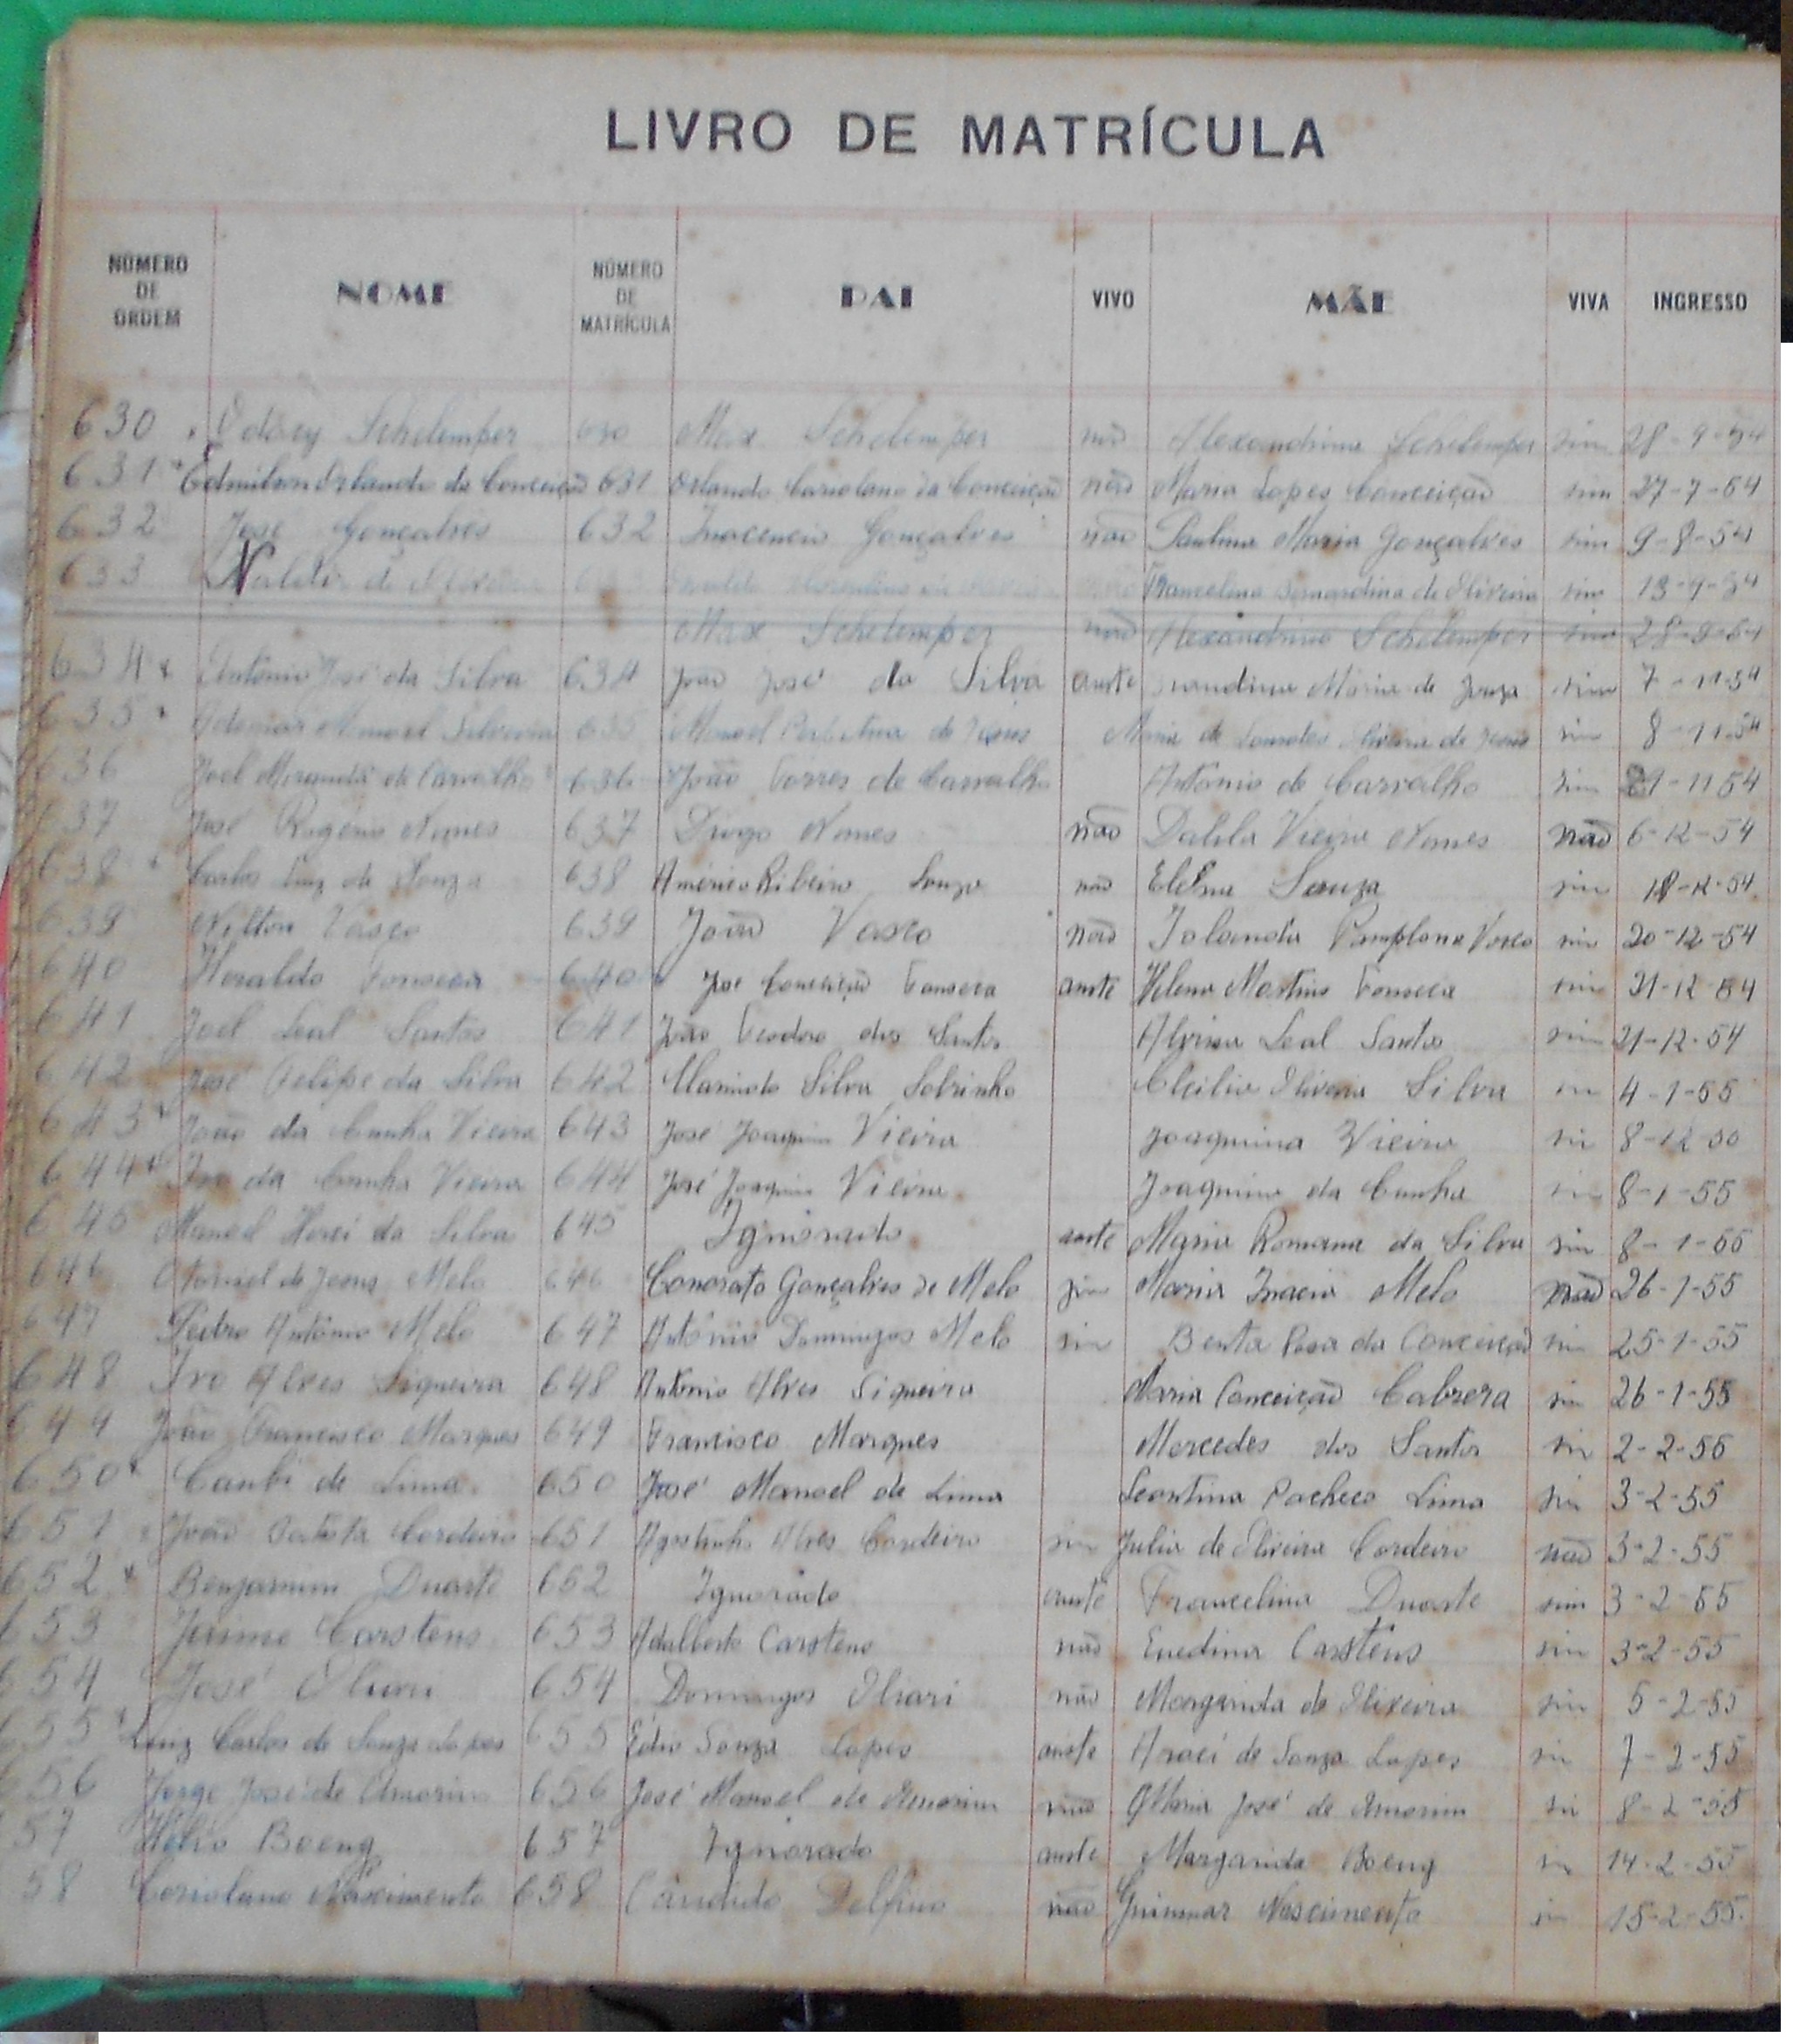 LIVRO DE MATRÍCULA
NÚMERO DE ORDEM NOME NÚMERO DE MATRÍCULA PAI VIVO MÃE VIVA INGRESSO
630 Schelemper 630 Max Schelemper não Alexandrina Schelemper sim 28-9-54
631 Edmilson Orlando da Conceição 631 Orlando Cariolano da Conceição não Maria Lopes Conceição sim 27-7-54
632 José Gonçalves 632 Inocencio Gonçalves não Paulina Maria Gonçalves sim 9-8-54
633 Francelina Bernardina de Oliveira sim 13-9-54
Max Schelemper não Alexandrina Schelemper sim 28-9-54
634 Antônio José da Silva 634 João José da Silva auste Maria de Souza sim 7-11-54
635 Manoel Silveira 635 Manoel de Jesus Maria de Lourdes Silveira de Jesus sim 8-11-54
636 Joel Miranda de Carvalho 636 João Torres de Carvalho Antônia de Carvalho sim 11 54
637 José Rogério Nunes 637 Diogo Nunes não Dalila Vieira Nunes não 6-12-54
638 Carlos Luiz de Souza 638 Américo Ribeiro Souza não Souza sim 18-12-54
639 Nilton Vasco 639 João Vasco não Iolanda Pamplona Vasco sim 20-12-54
640 Heraldo Fonseca 640 José Conceição Fonseca auste Helena Martins Fonseca sim 21-12-54
641 Joel Leal Santos 641 João Teodoro dos Santos Alvina Leal Santos sim 21-12-54
642 José Felipe da Silva 642 Silva Sobrinho Oliveira Silva sim 4-1-55
643 João da Cunha Vieira 643 José Joaquim Vieira Joaquina Vieira sim 8-12-
644 Ivo da Cunha Vieira 644 José Joaquim Vieira Joaquina da Cunha sim 8-1-55
645 Manoel da Silva 645 Ignorado auste Maria Romana da Silva sim 8-1-55
646 de Jesus Melo 646 Conorato Gonçalves de Melo sim Maria Inacia Melo não 26-1-55
647 Pedro Antônio Melo 647 Antônio Domingos Melo sim Benta Rosa da Conceição sim 25-1-55
648 Ivo Alves Siqueira 648 Antonio Alves Siqueira Maria Conceição Cabrera sim 26-1-55
649 João Francisco Marques 649 Francisco Marques Mercedes dos Santos sim 2-2-55
650 Canbi de Lima 650 José Manoel de Lima Leontina Pacheco Lima sim 3-2-55
651 João Batista Cordeiro 651 Agostinho Alves Cordeiro sim Julia de Oliveira Cordeiro não 3-2-55
652 Benjamim Duarte 652 Ignorado auste Francelina Duarte sim 3-2-55
653 Jaime Carstens 653 Adalberto Carstens não Enedina Carstens sim 3-2-55
654 José 654 Domingos não Margarida de Oliveira sim 5-2-55
655 Luiz Carlos de Souza Lopes 655 Édio Souza Lopes auste Araci de Souza Lopes sim 7-2-55
656 Jorge José de Amorim 656 José Manoel de Amorim não Maria José de Amorim sim 8-2-55
57 Hélio Boeng 657 Ignorado auste Margarida Boeng sim 14-2-55
58 Coriolano Nascimento 658 Cândido Delfino não Guiomar Nascimento sim 15-2-55